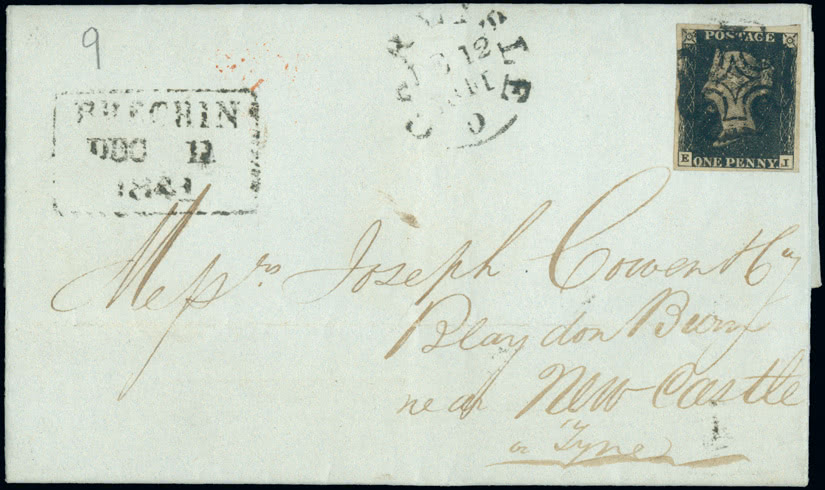 9
BRECHIN
DEC 11
1841
12
1841
POSTAGE
E I
ONE PENNY
Messrs Joseph Cowen & Co
Blaydon Burn
near New Castle
on Tyne